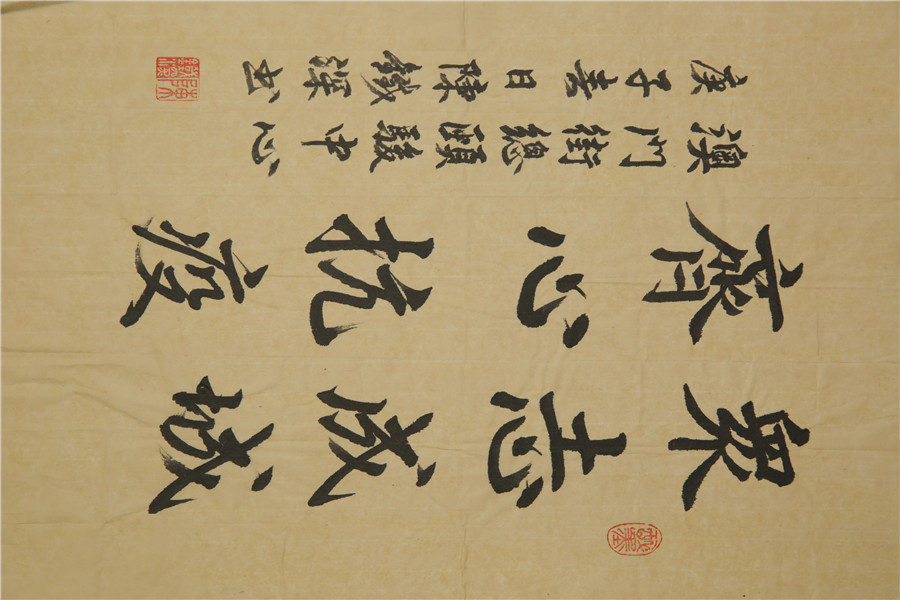 眾志成城
齊心抗疫
澳門街總頤駿中心
庚子春日陳鐵深書